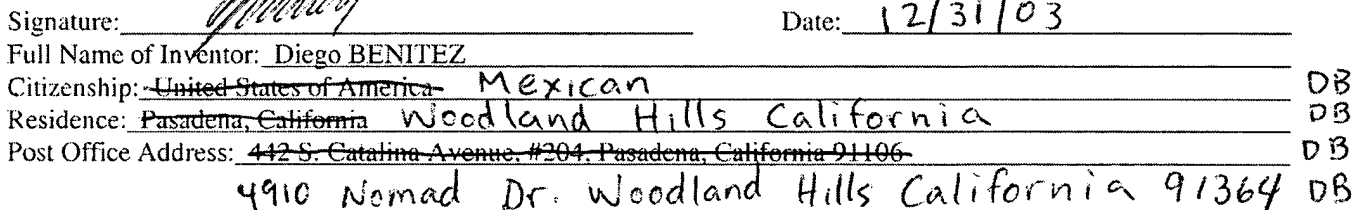 Signature: Date: 12/31/03
Full Name of Inventor: Diego BENITEZ
Citizenship: United States of America Mexican DB
Residence: Pasadena, California Woodland Hills California DB
Post Office Address: 442 S. Catalina Avenue, #204, Pasadena, California 91106 DB
4910 Nomad Dr. Woodland Hills California 91364 DB